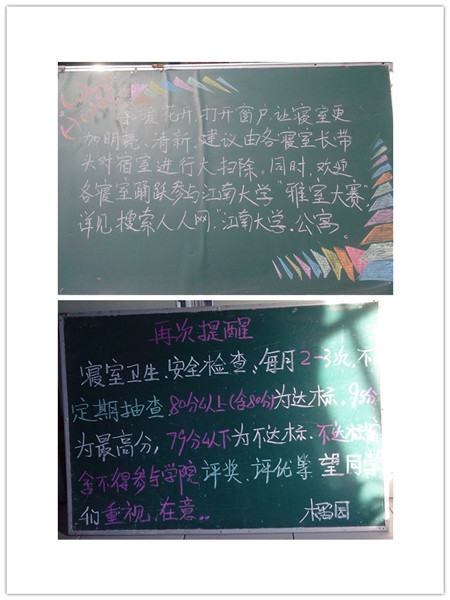 春暖花开,打开窗户,让寝室更
加明亮、清新,建议由各寝室长带
头对宿室进行大扫除。同时,欢迎
各寝室踊跃参与江南大学“雅室大赛”,
详见搜索人人网,“江南大学·公寓。
再次提醒
寝室卫生、安全检查、每月2-3次,不
定期抽查80分以上(含80分)为达标、95分
为最高分,79分以下为不达标、不达标宿
舍不得参与学院评奖、评优等 望同学
们重视、在意..
榴园